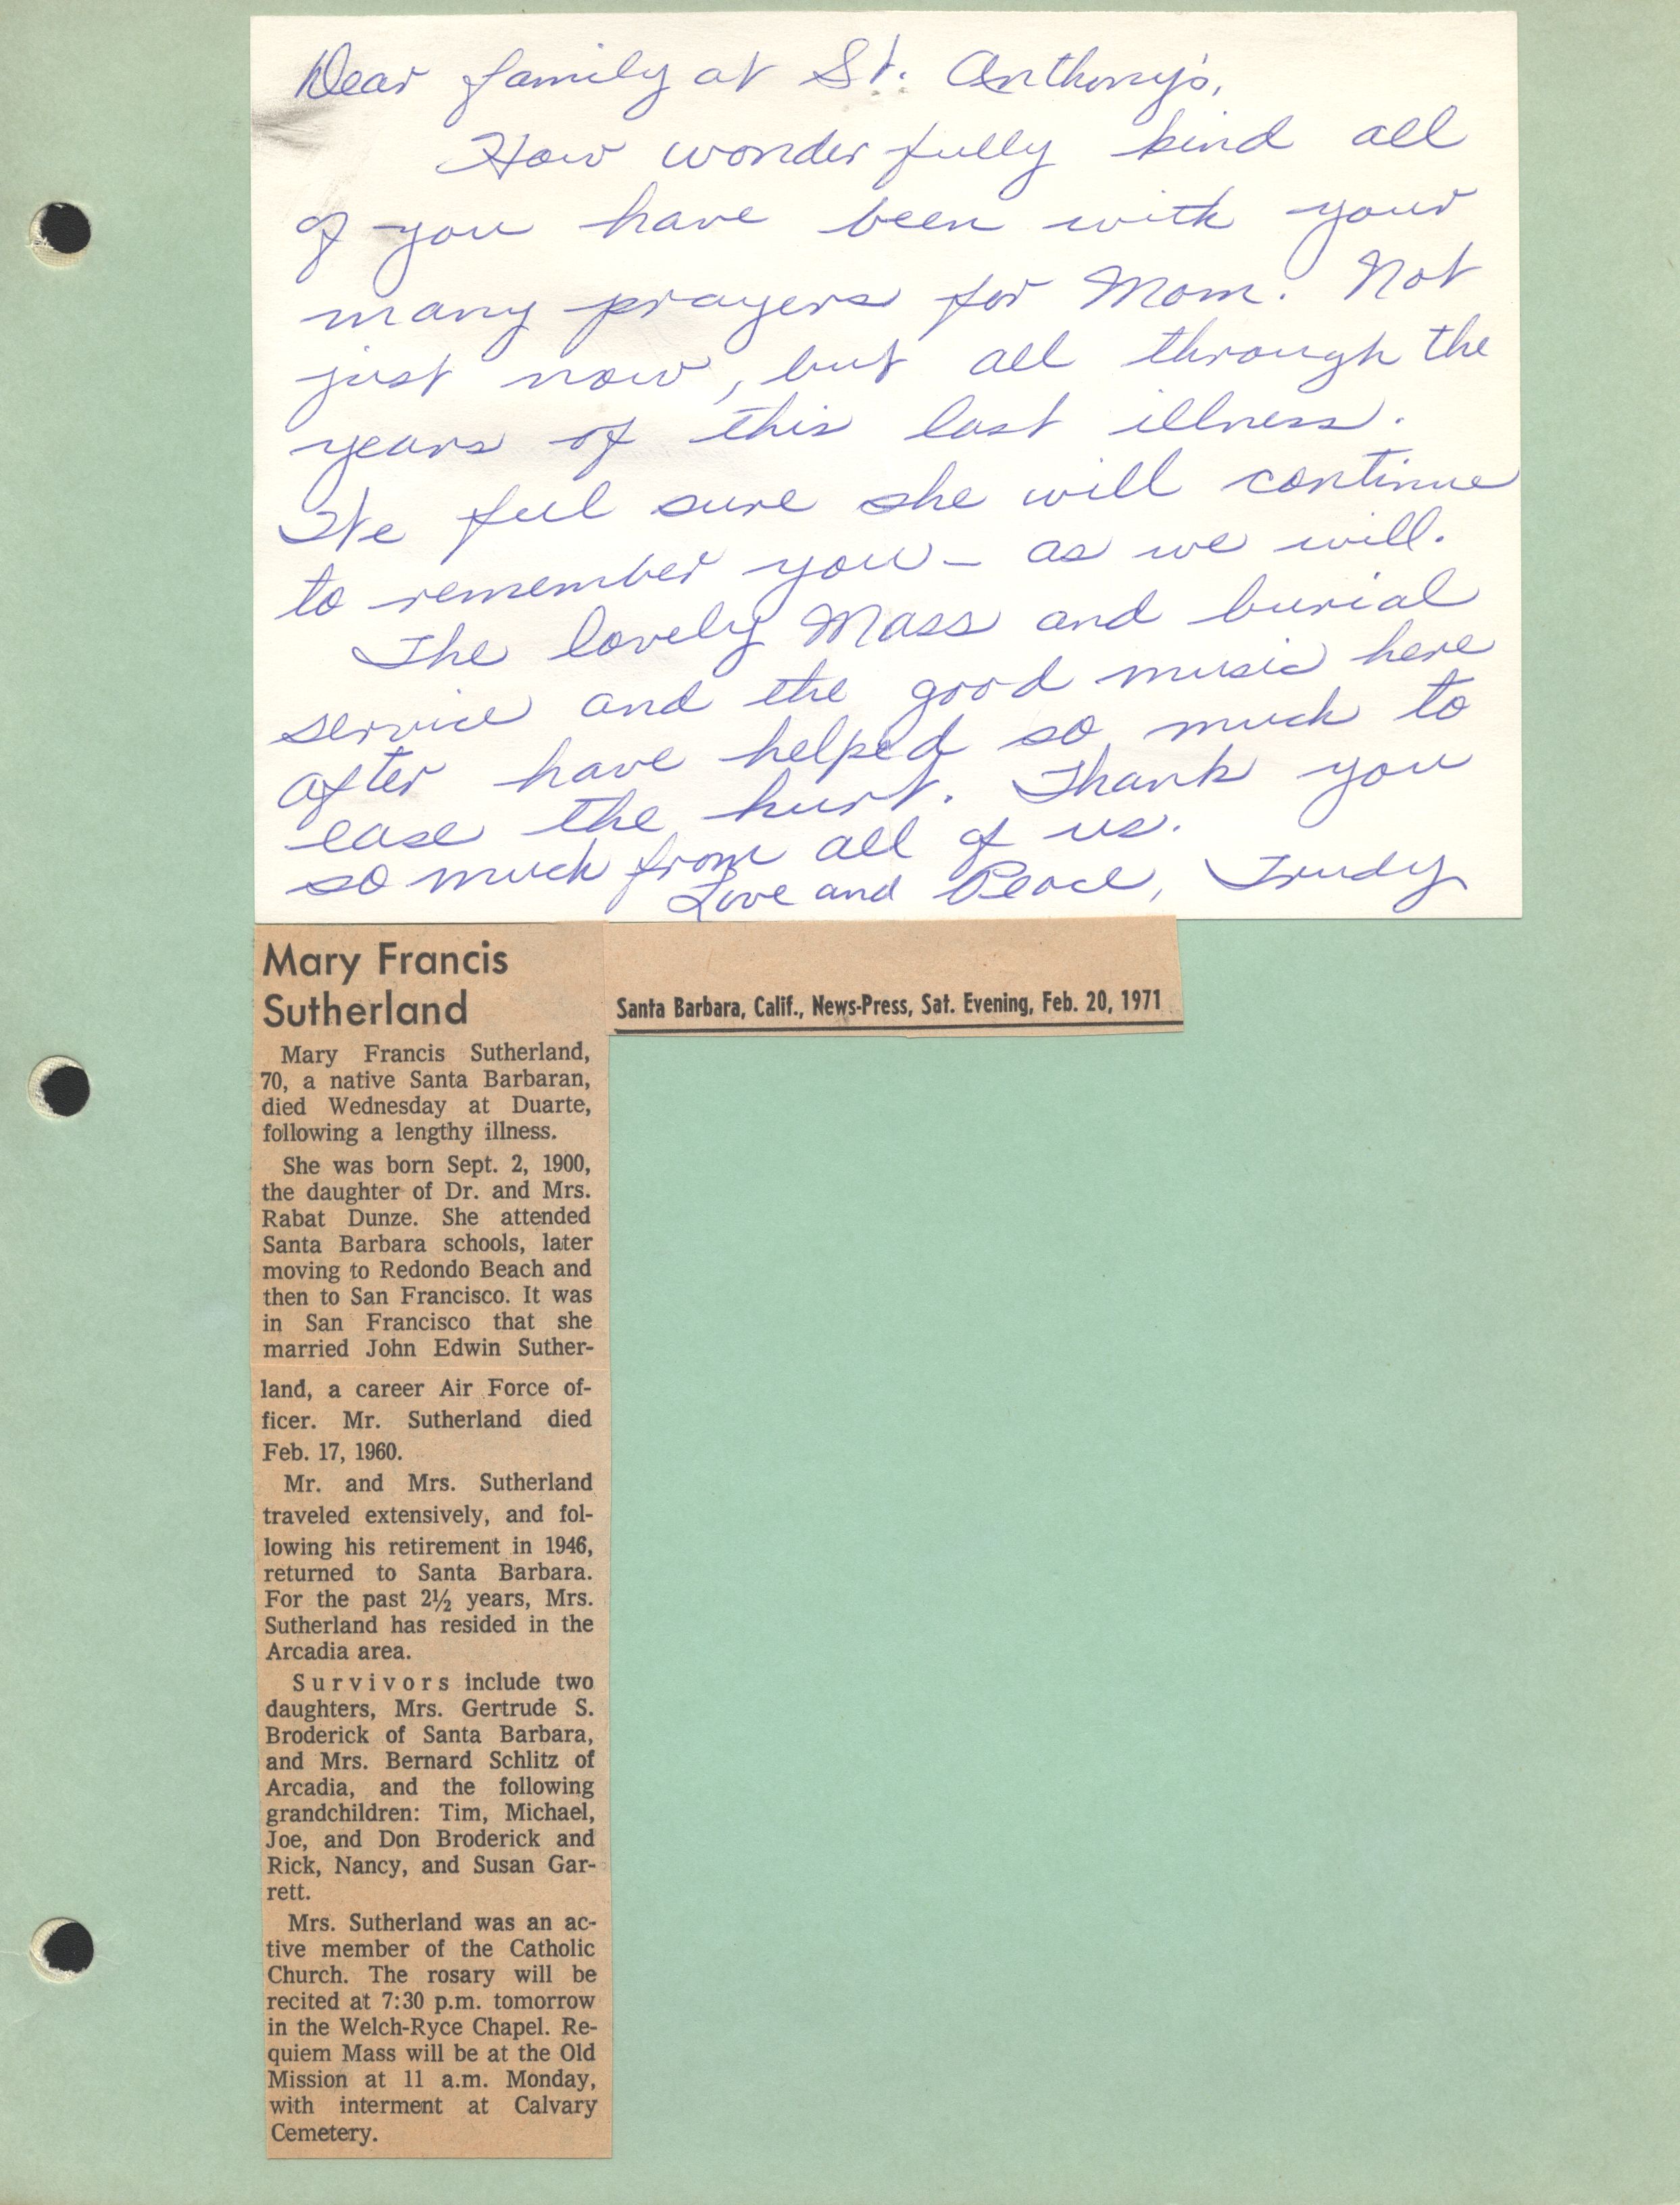 Dear family at St. Anthony's,
How wonderfully kind all
of you have been with your
many prayers for Mom. Not
just now, but all through the
years of this last illness.
We feel sure she will continue
to remember you - as we will.
The lovely Mass and burial
service and the good music here
after have helped so much to
ease the hurt. Thank you
so much from all of us.
Love and Peace, Trudy
Mary Francis
Sutherland
Santa Barbara, Calif., News-Press, Sat. Evening, Feb. 20, 1971
Mary Francis Sutherland,
70, a native Santa Barbaran,
died Wednesday at Duarte,
following a lengthy illness.
She was born Sept. 2, 1900,
the daughter of Dr. and Mrs.
Rabat Dunze. She attended
Santa Barbara schools, later
moving to Redondo Beach and
then to San Francisco. It was
in San Francisco that she
married John Edwin Suther-
land, a career Air Force of-
ficer. Mr. Sutherland died
Feb. 17, 1960.
Mr. and Mrs. Sutherland
traveled extensively, and fol-
lowing his retirement in 1946,
returned to Santa Barbara.
For the past 2½ years, Mrs.
Sutherland has resided in the
Arcadia area.
Survivors include two
daughters, Mrs. Gertrude S.
Broderick of Santa Barbara,
and Mrs. Bernard Schlitz of
Arcadia, and the following
grandchildren: Tim, Michael,
Joe, and Don Broderick and
Rick, Nancy, and Susan Gar-
rett.
Mrs. Sutherland was an ac-
tive member of the Catholic
Church. The rosary will be
recited at 7:30 p.m. tomorrow
in the Welch-Ryce Chapel. Re-
quiem Mass will be at the Old
Mission at 11 a.m. Monday,
with interment at Calvary
Cemetery.